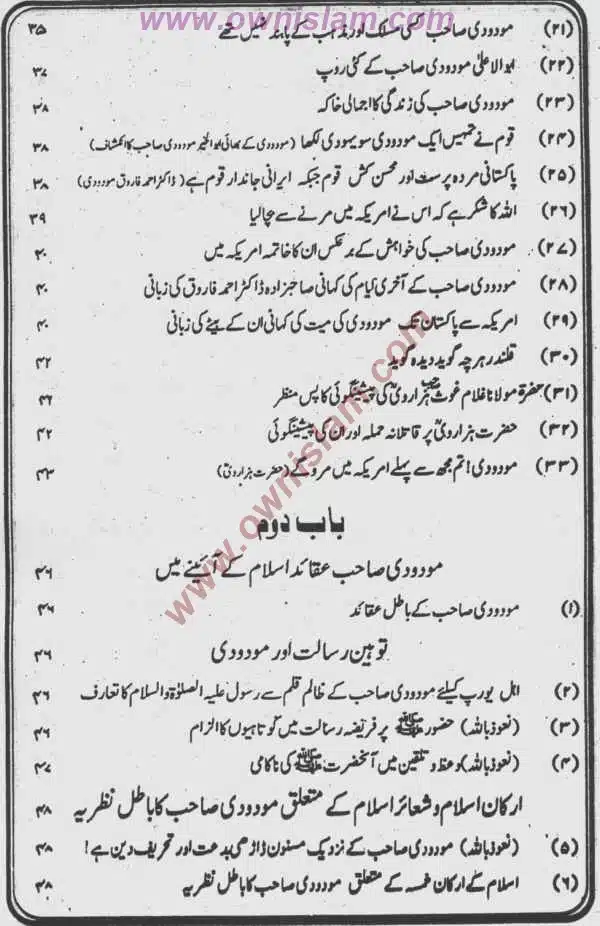 www.ownislam.com
(۲۱) مودودی صاحب کسی مسلک اور مذہب کے پابند نہیں تھے ۳۵
(۲۲) ابوالاعلیٰ مودودی صاحب کے کئی روپ ۳۷
(۲۳) مودودی صاحب کی زندگی کا اجمالی خاکہ ۳۸
(۲۴) قوم نے تمہیں ایک مودودی سو یہودی لکھا (مودودی کے بھائی ابوالخیر مودودی صاحب کا انکشاف) ۳۸
(۲۵) پاکستانی مردہ پرست اور محسن کش قوم جبکہ ایرانی جاندار قوم ہے (ڈاکٹر احمد فاروق مودودی) ۳۸
(۲۶) اللہ کا شکر ہے کہ اس نے امریکہ میں مرنے سے بچالیا ۳۹
(۲۷) مودودی صاحب کی خواہش کے برعکس ان کا خاتمہ امریکہ میں ۴۰
(۲۸) مودودی صاحب کے آخری ایام کی کہانی صاحبزادہ ڈاکٹر احمد فاروق کی زبانی ۴۰
(۲۹) امریکہ سے پاکستان تک مودودی کی میت کی کہانی ان کے بیٹے کی زبانی ۴۰
(۳۰) قلندر ہرچہ گوید دیدہ گوید ۴۲
(۳۱) حضرۃ مولانا غلام غوث صاحب ہزارویؒ کی پیشینگوئی کا پس منظر ۴۲
(۳۲) حضرت ہزارویؒ پر قاتلانہ حملہ اور ان کی پیشینگوئی ۴۲
(۳۳) مودودی! تم مجھ سے پہلے امریکہ میں مروگے (حضرت ہزارویؒ) ۴۳
باب دوم
مودودی صاحب عقائد اسلام کے آئینے میں ۴۶
(۱) مودودی صاحب کے باطل عقائد ۴۶
توہین رسالت اور مودودی ۴۶
(۲) اہل یورپ کیلئے مودودی صاحب کے ظالم قلم سے رسول علیہ الصلوٰۃ والسلام کا تعارف ۴۶
(۳) (نعوذ باللہ) حضور ﷺ پر فریضہ رسالت میں کوتاہیوں کا الزام ۴۶
(۴) (نعوذ باللہ) وعظ و تلقین میں آنحضرت ﷺ کی ناکامی ۴۷
ارکان اسلام و شعائر اسلام کے متعلق مودودی صاحب کا باطل نظریہ ۴۸
(۵) (نعوذ باللہ) مودودی صاحب کے نزدیک مسنون ڈاڑھی بدعت اور تحریف دین ہے! ۴۸
(۶) اسلام کے ارکان خمسہ کے متعلق مودودی صاحب کا باطل نظریہ ۴۸
www.ownislam.com